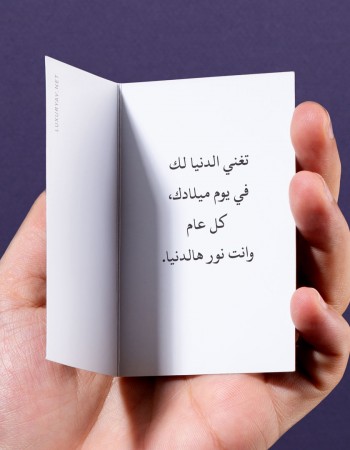 LUXURYBY.NET
تغني الدنيا لك
في يوم ميلادك،
كل عام
وانت نور هالدنيا.